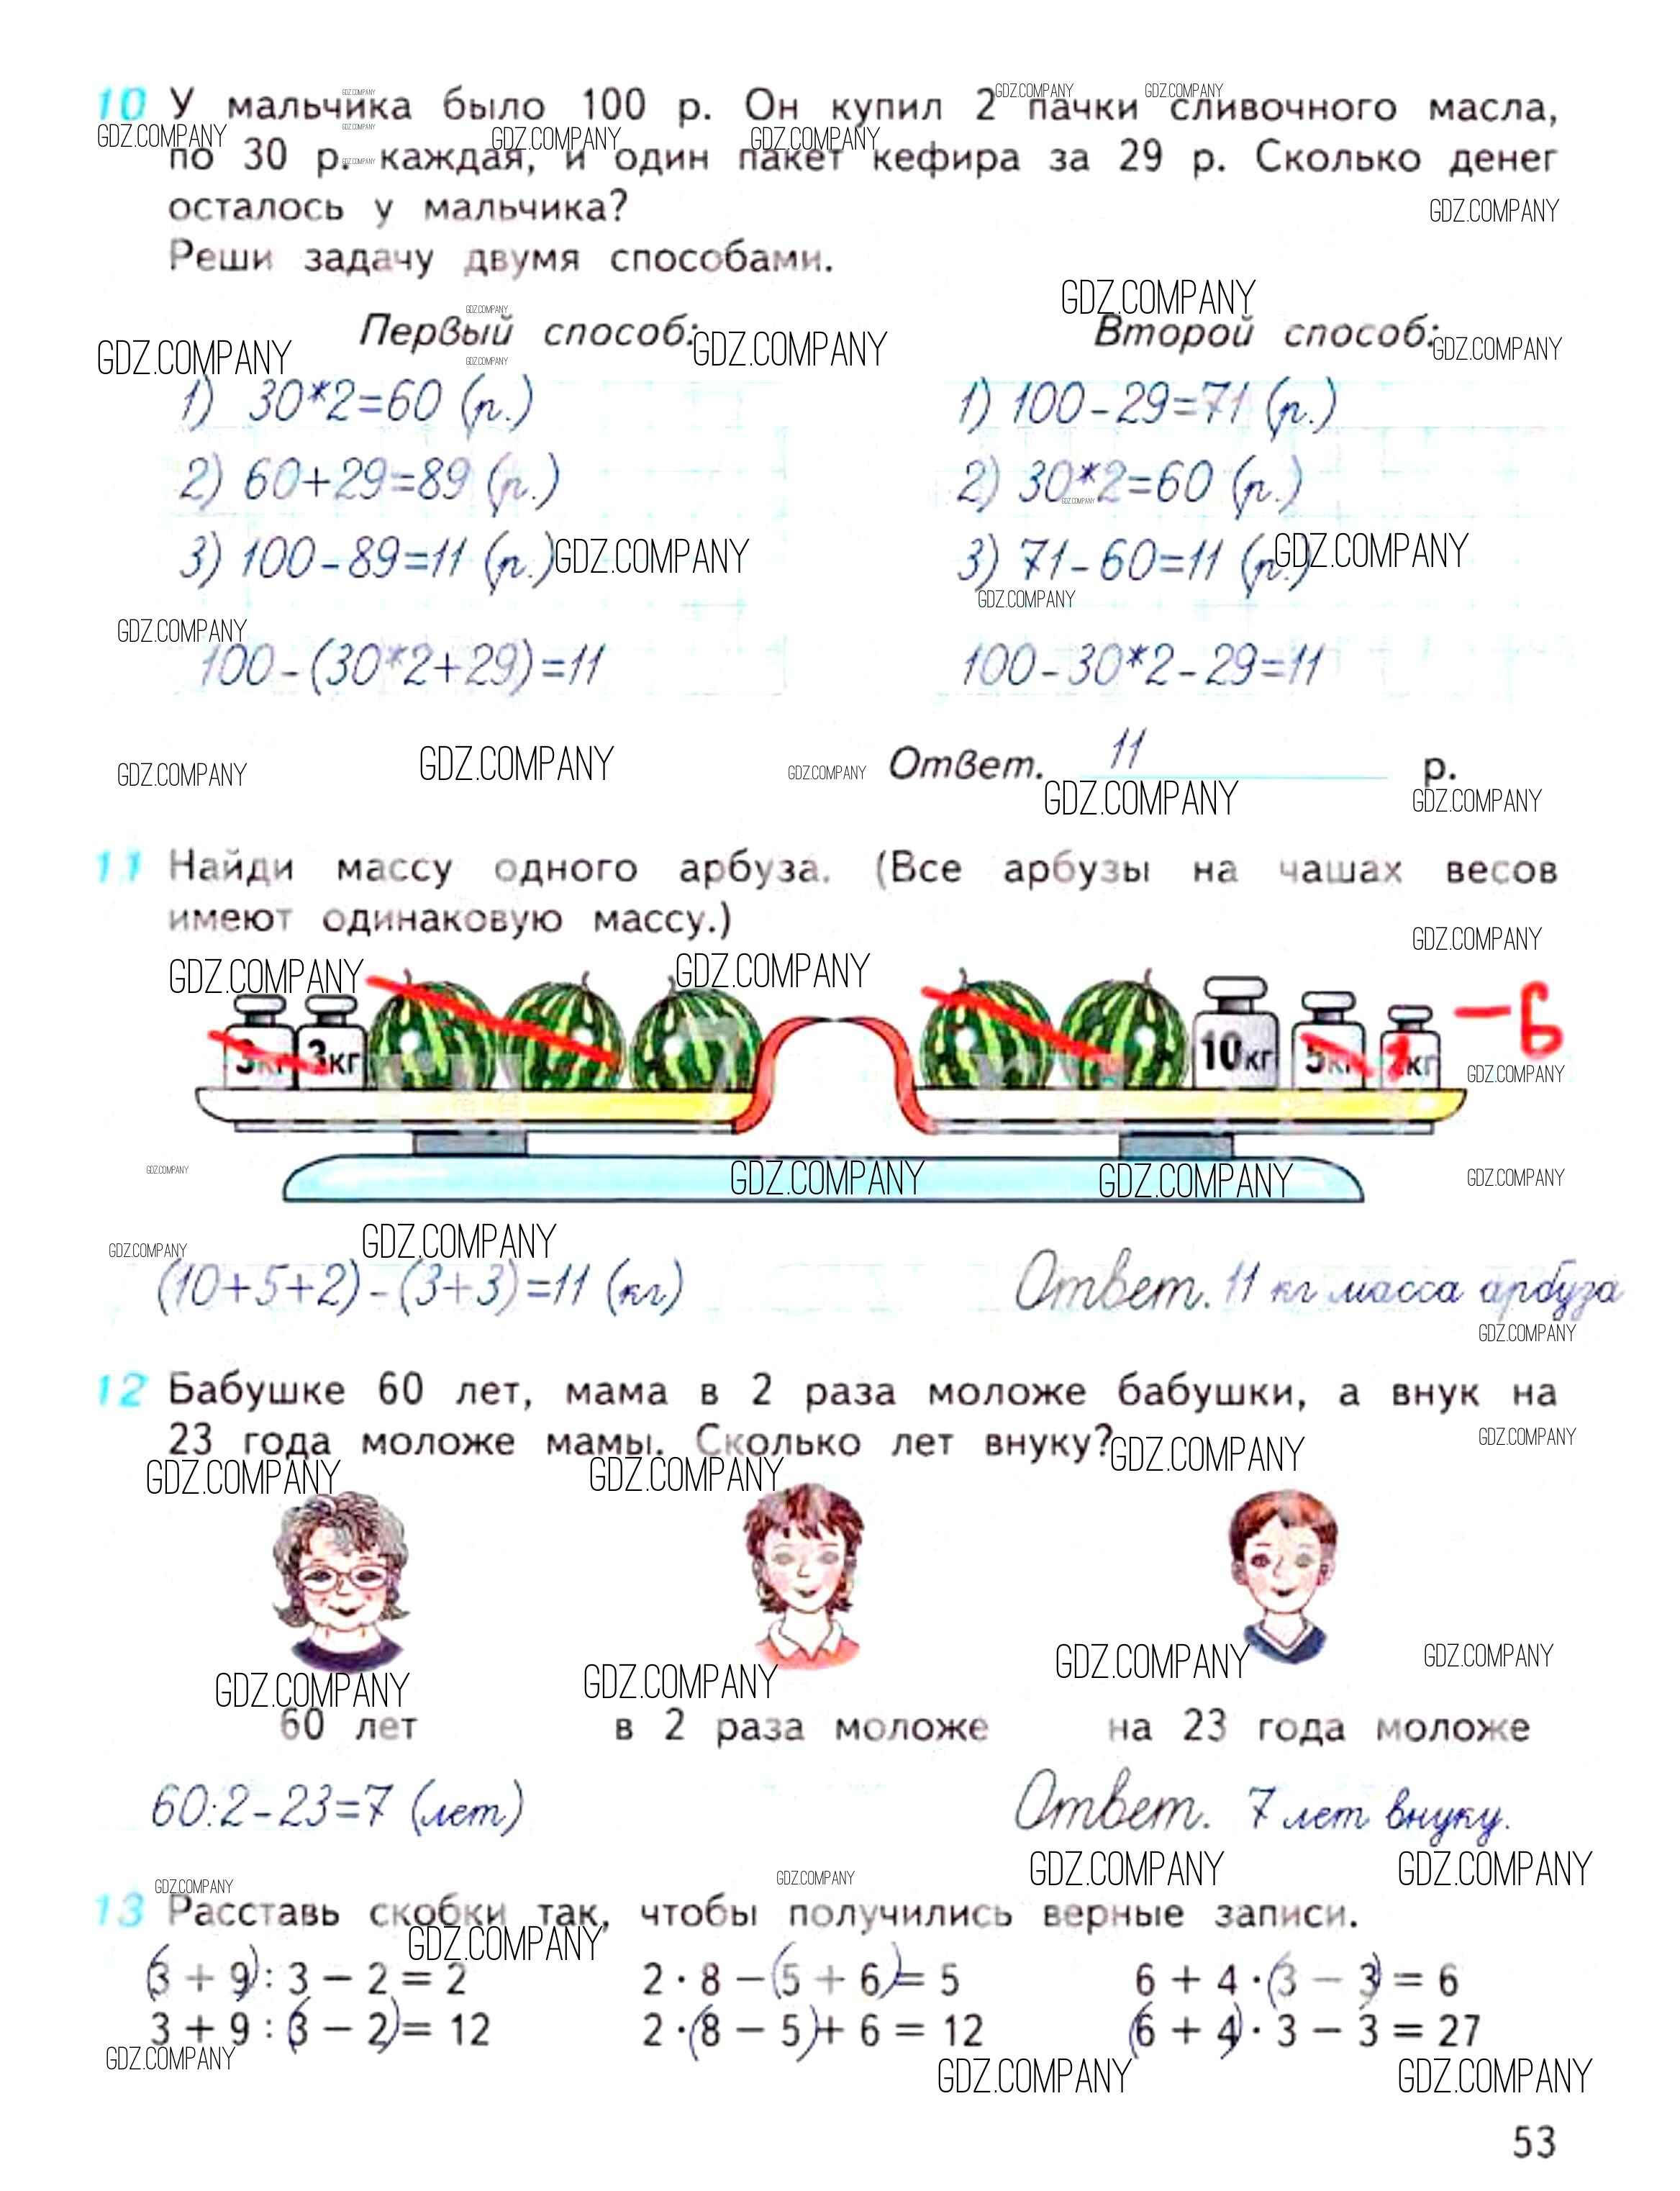 10 У мальчика было 100 р. Он купил 2 пачки сливочного масла,
по 30 р. каждая, и один пакет кефира за 29 р. Сколько денег
осталось у мальчика?
Реши задачу двумя способами.
Первый способ: Второй способ:
1) 30*2=60 (р.) 1) 100-29=71 (р.)
2) 60+29=89 (р.) 2) 30*2=60 (р.)
3) 100-89=11 (р.) 3) 71-60=11 (р.)
100-(30*2+29)=11 100-30*2-29=11
Ответ. 11 р.
11 Найди массу одного арбуза. (Все арбузы на чашах весов
имеют одинаковую массу.)
3кг 3кг 10кг 5кг кг -6
(10+5+2)-(3+3)=11 (кг) Ответ. 11 кг масса арбуза
12 Бабушке 60 лет, мама в 2 раза моложе бабушки, а внук на
23 года моложе мамы. Сколько лет внуку?
60 лет в 2 раза моложе на 23 года моложе
60:2-23=7 (лет) Ответ. 7 лет внуку.
13 Расставь скобки так, чтобы получились верные записи.
(3 + 9) : 3 − 2 = 2 2 · 8 − (5 + 6) = 5 6 + 4 · (3 − 3) = 6
3 + 9 : (3 − 2) = 12 2 · (8 − 5) + 6 = 12 (6 + 4) · 3 − 3 = 27
53
GDZ.COMPANY